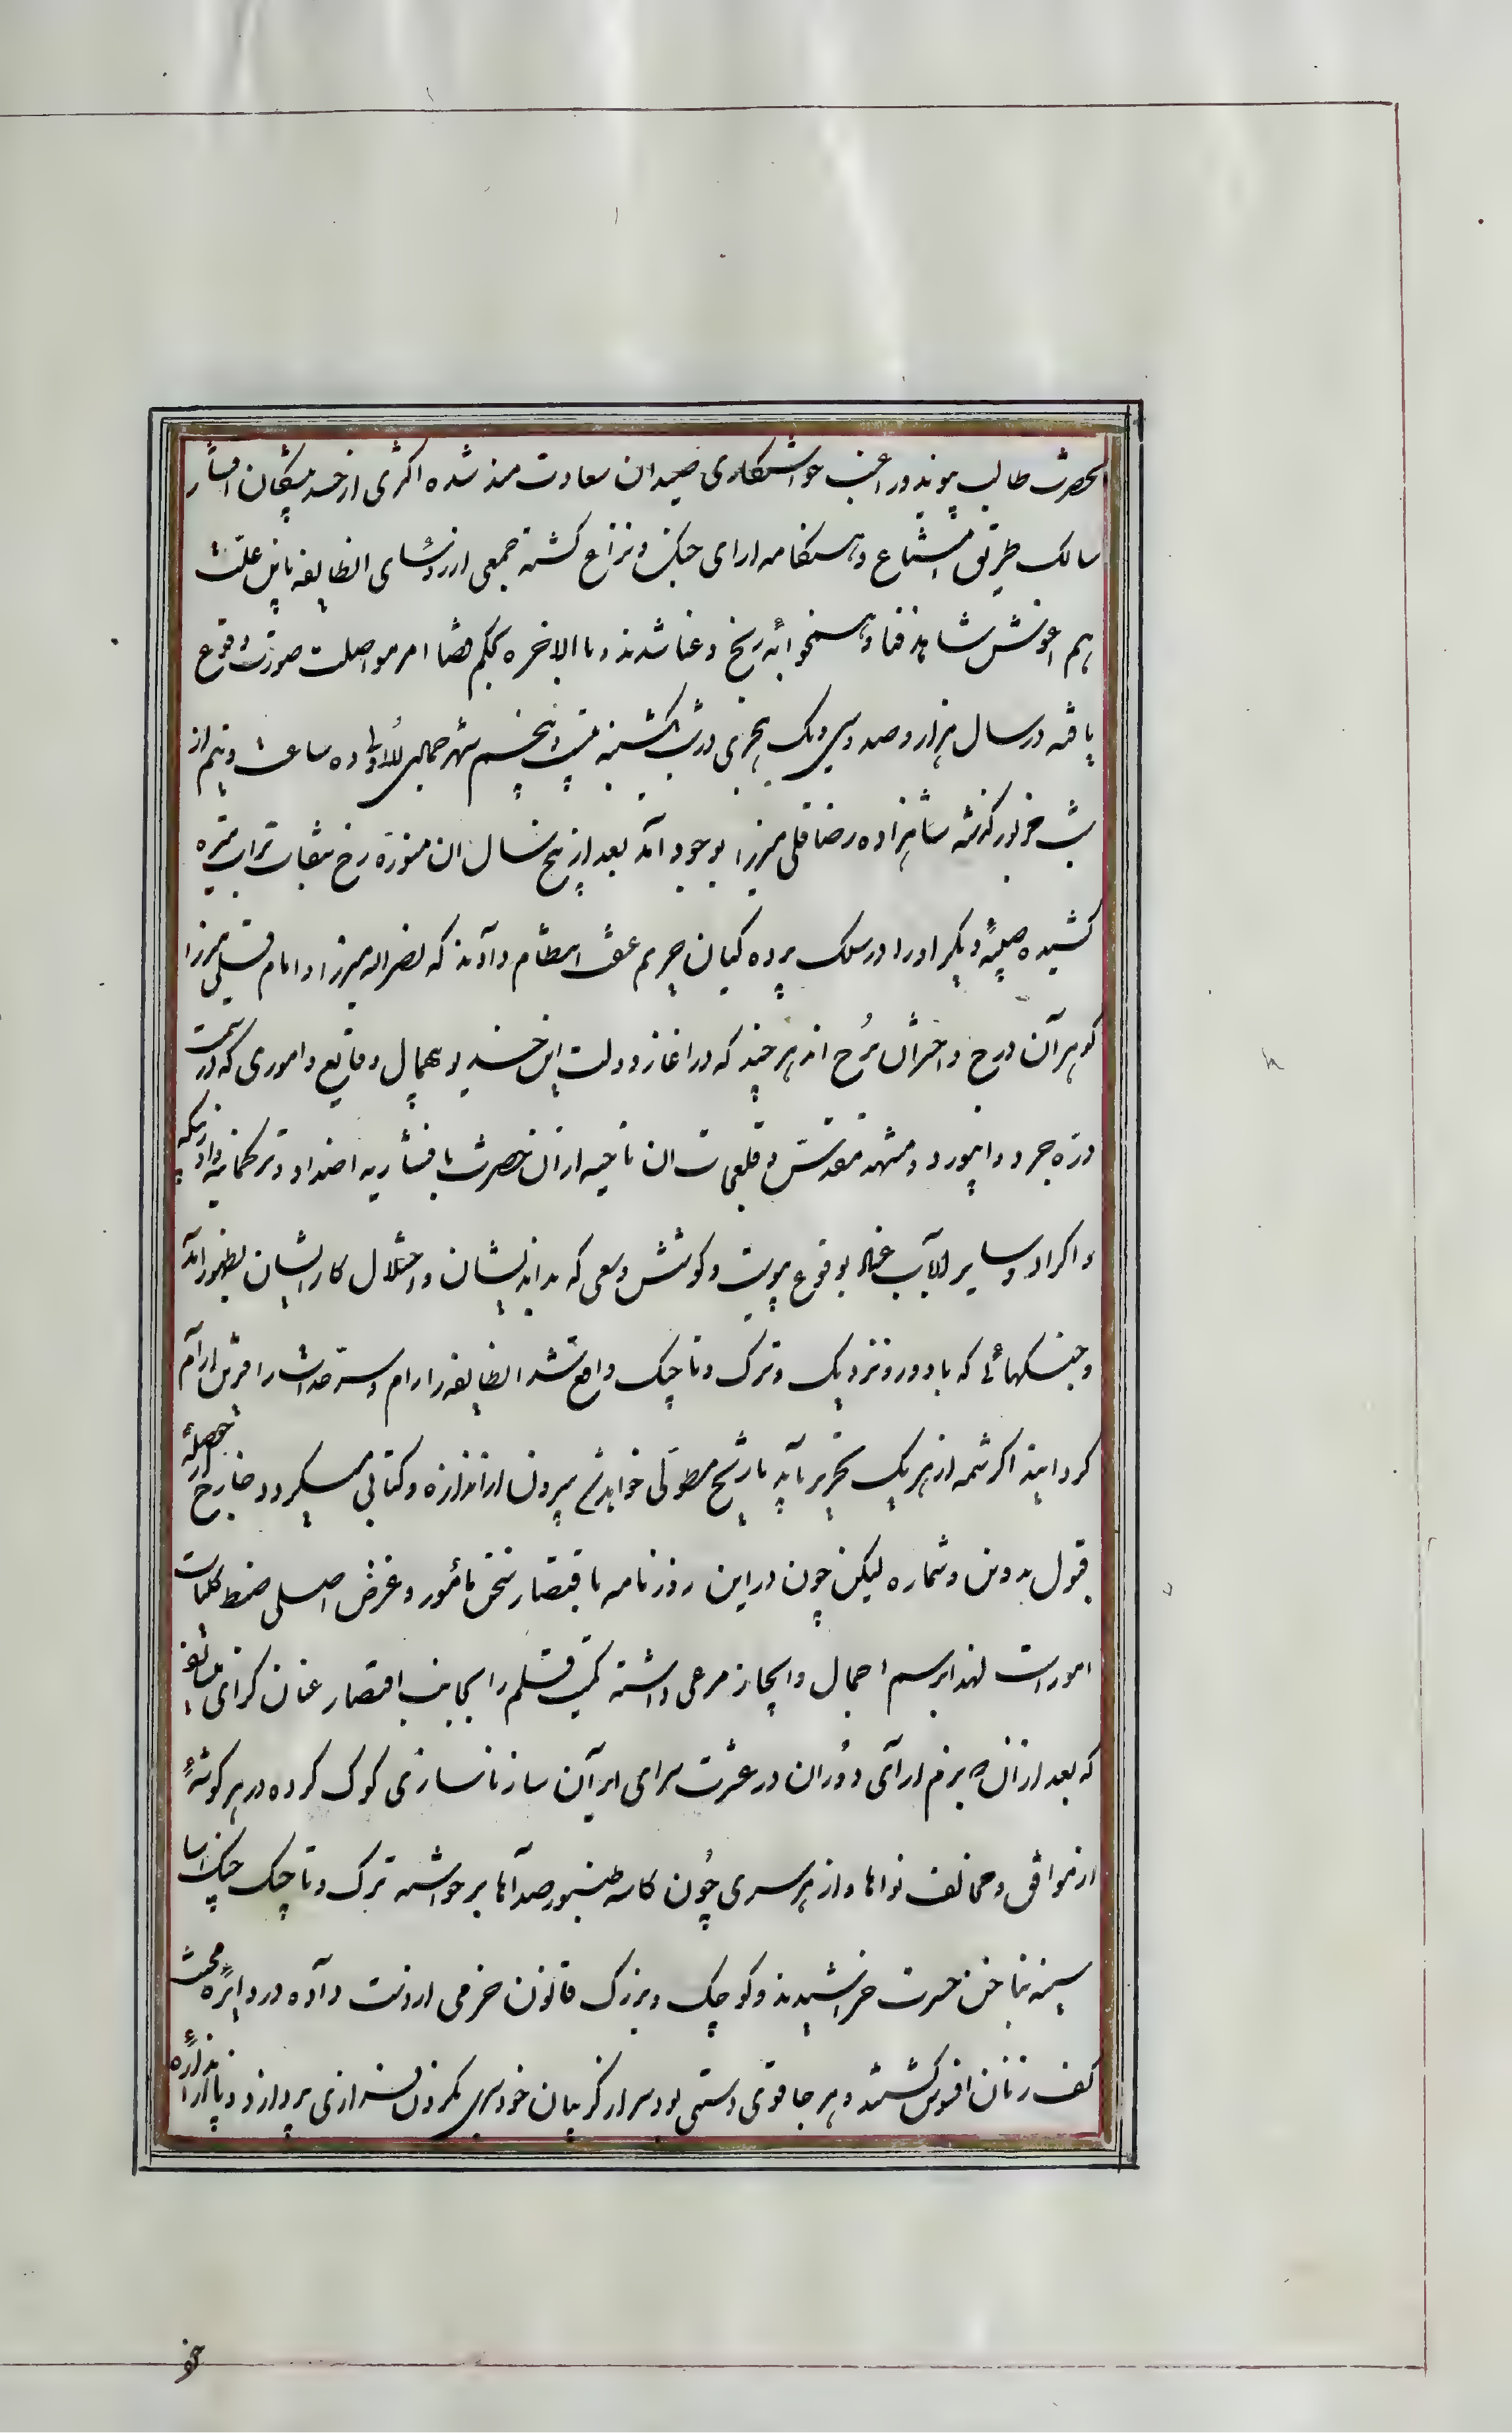 آنحضرت طالب پیوند و راغب خواستگاری ضمیدان سعادت مند شده اکثری از خسر پیشگان افشار
سالک طریق امتناع و هنگامه ارای جنک و نزاع کشته جمعی از رؤسای انطایفه باین علت
هم اغوش شاهد فنا و همخوابه رنج و عنا شدند و بالاخره بحکم قضا امر مواصلت صورت وقوع
یافته در سال هزار و صد و سی و یک هجری در شب یکشنبه بیست و پنجم شهر جمادی الاولی ده ساعت و نیم از
شب مزبور گذشته شاهزاده رضا قلی میرزا بوجود آمد بعد از پنج سال ان مستوره رخ بنقاب تراب تیره
کشیده صبیه دیگر او را در سلک پرده کیان حریم عفت انتظام دادند که نصرالله میرزا و امام قلی میرزا
کوهر آن درج و اختران بُرج اند هر چند که در اغاز دولت این خدیو بیهمال وقایع و اموری که در سمت
دره جرد و ابیورد و مشهد مقدس و قلعجات ان ناحیه از ان حضرت با افشاریه اضداد و ترکمانیه و اوزبکه
و اکراد و سایر ارباب عناد بوقوع پیوست و کوشش و سعی که بد اندیشان در اختلال کار ایشان بظهور امد
و جنکهائی که با دور و نزدیک و ترک و تاجیک واقع شد انطایفه را رام و سرحدات را قرین ارام
کردانیدند اکر شمه از هر یک تحریر یابد تاریخ مطولی خواهد شد بیرون از اندازه و کتابی میکردد خارج از حوصله
قبول بدون و شماره لیکن چون در این روزنامه باقتصار سخن مأمور و غرض اصلی ضبط کلیات
امور است لهذا رسم اجمال و ایجاز مرعی داشته کمیت قلم را بجانب اقتصار عنان کرای میسازد
که بعد از ان که بزم ارای دوُران در عشرت سرای ایران ساز ناسازی کوک کرده در هر کوشهٔ
از موافق و مخالف نواها و از هر سری چُون کاسه طنبور صداها برخواست ترک و تاجیک چنک اسا
سینه بناخن حسرت خراشیدند و کوچک و بزرک قانون خرمی از دست داده در دایرهٔ محنت
کف زنان افسوس کشتند و هر جا قوی دستی بود سر از کریبان خودسری بکردن فرازی بردازد و پا از اندازه
خو